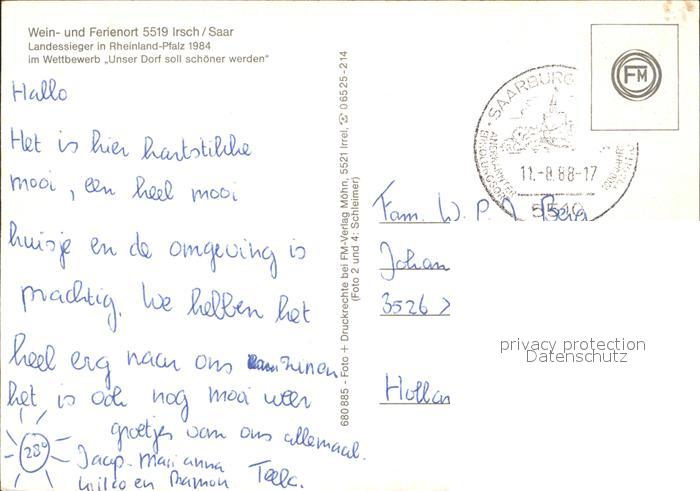 Wein- und Ferienort 5519 Irsch/Saar
Landessieger in Rheinland-Pfalz 1984
im Wettbewerb „Unser Dorf soll schöner werden“
Hallo
Het is hier hartstikke
mooi, een heel mooi
huisje en de omgeving is
prachtig. We hebben het
heel erg naar ons zinnen
het is ook nog mooi weer
28°
groetjes van ons allemaal.
Jaap-Marianna
Wilco en Ramon
680 885 - Foto + Druckrechte bei FM-Verlag Möhn, 5521 Irrel, ☎ 0 65 25 - 214
(Foto 2 und 4: Schleimer)
FM
SAARBURG
11.-8.88-17
5510
Fam. W. P. J Berg
Johan
3526
Hollan
privacy protection
Datenschutz